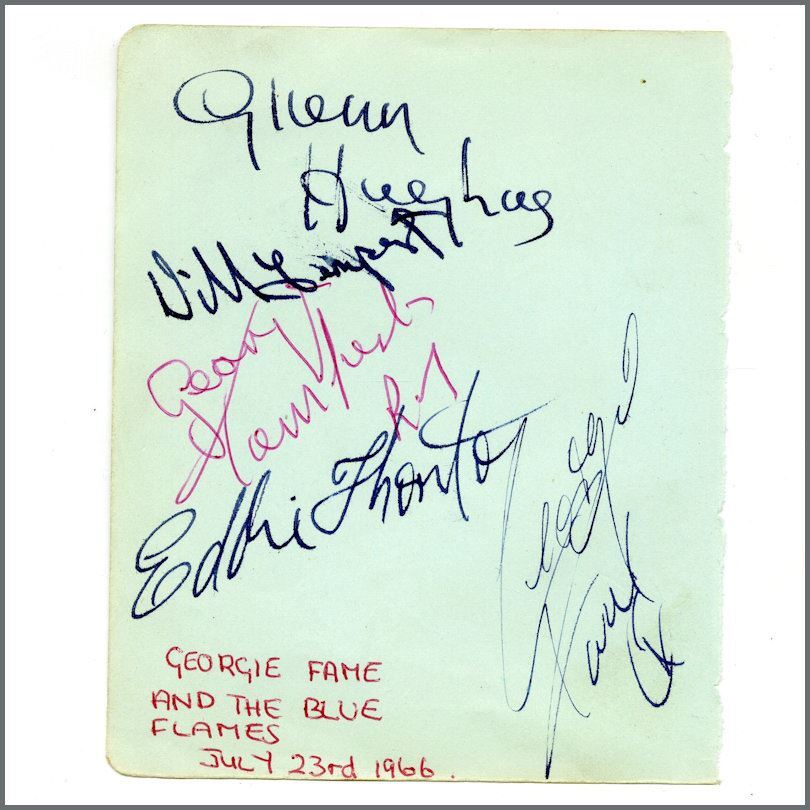 Glenn
Hughes
Bill
Eddie Thornton
Georgie
Fame
GEORGIE FAME
AND THE BLUE
FLAMES
JULY 23rd 1966.